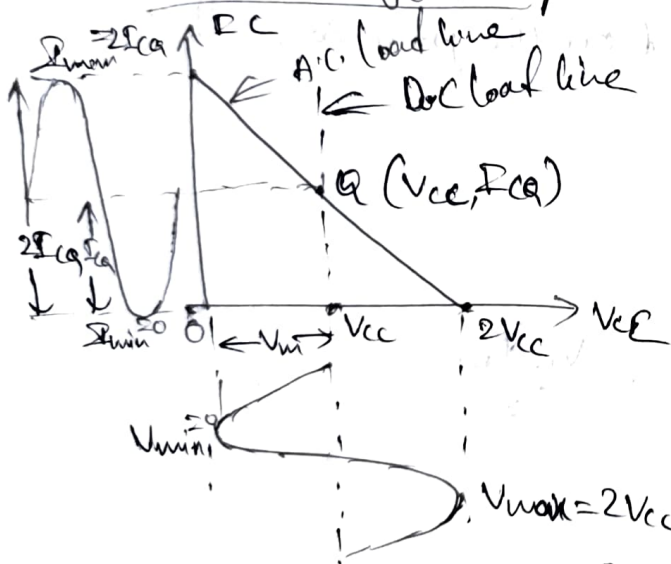 Imax=2ICQ
IC
A.C. load line
D.C load line
Q (VCC, ICQ)
2ICQ
ICQ
Imin=0
0
Vm
VCC
2VCC
VCE
Vmin=0
Vmax=2VCC